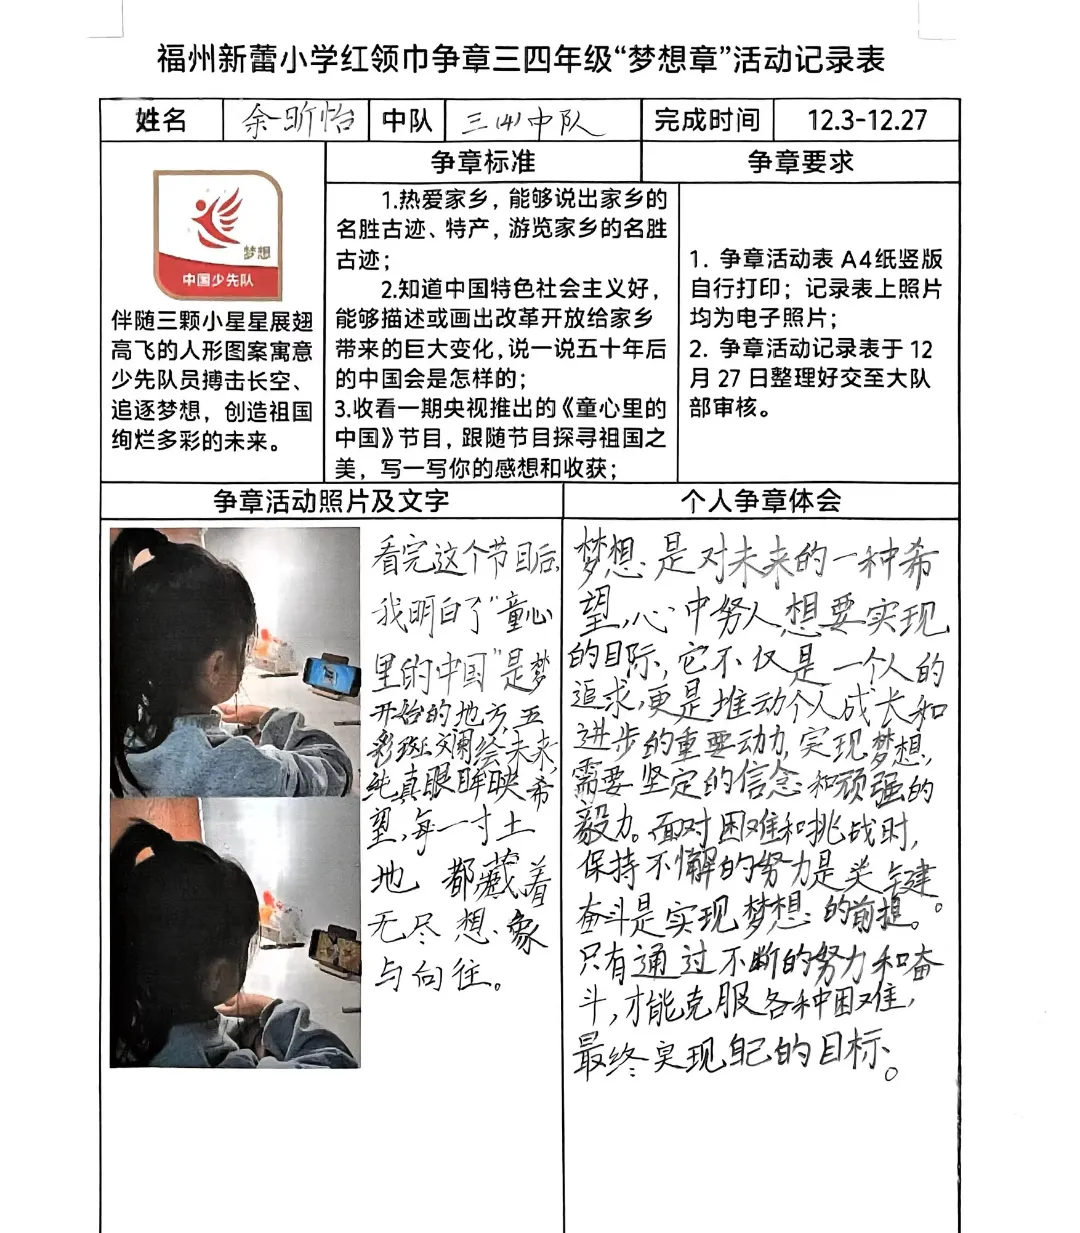 福州新蕾小学红领巾争章三四年级“梦想章”活动记录表
姓名 余昕怡 中队 三(4)中队 完成时间 12.3-12.27
争章标准 争章要求
梦想
中国少先队
伴随三颗小星星展翅
高飞的人形图案寓意
少先队员搏击长空、
追逐梦想，创造祖国
绚烂多彩的未来。
1.热爱家乡，能够说出家乡的
名胜古迹、特产，游览家乡的名胜
古迹；
2.知道中国特色社会主义好，
能够描述或画出改革开放给家乡
带来的巨大变化，说一说五十年后
的中国会是怎样的；
3.收看一期央视推出的《童心里的
中国》节目，跟随节目探寻祖国之
美，写一写你的感想和收获；
1. 争章活动表 A4 纸竖版
自行打印；记录表上照片
均为电子照片；
2. 争章活动记录表于 12
月 27 日整理好交至大队
部审核。
争章活动照片及文字 个人争章体会
看完这个节目后,
我明白了“童心
里的中国”是梦
开始的地方,五
彩斑斓绘未来,
纯真眼眸映希
望,每一寸土
地 都藏着
无尽想象
与向往。
梦想是对未来的一种希
望,心中努人想要实现
的目际,它不仅是一个人的
追求,更是堆动个人成长和
进步的重要动力,实现梦想,
需要坚定的信念和顽强的
毅力。面对困难和挑战时,
保持不懈的努力是关键。
奋斗是实现梦想的前提。
只有通过不断的努力和奋
斗,才能克服各种困难,
最终实现自己的目标。